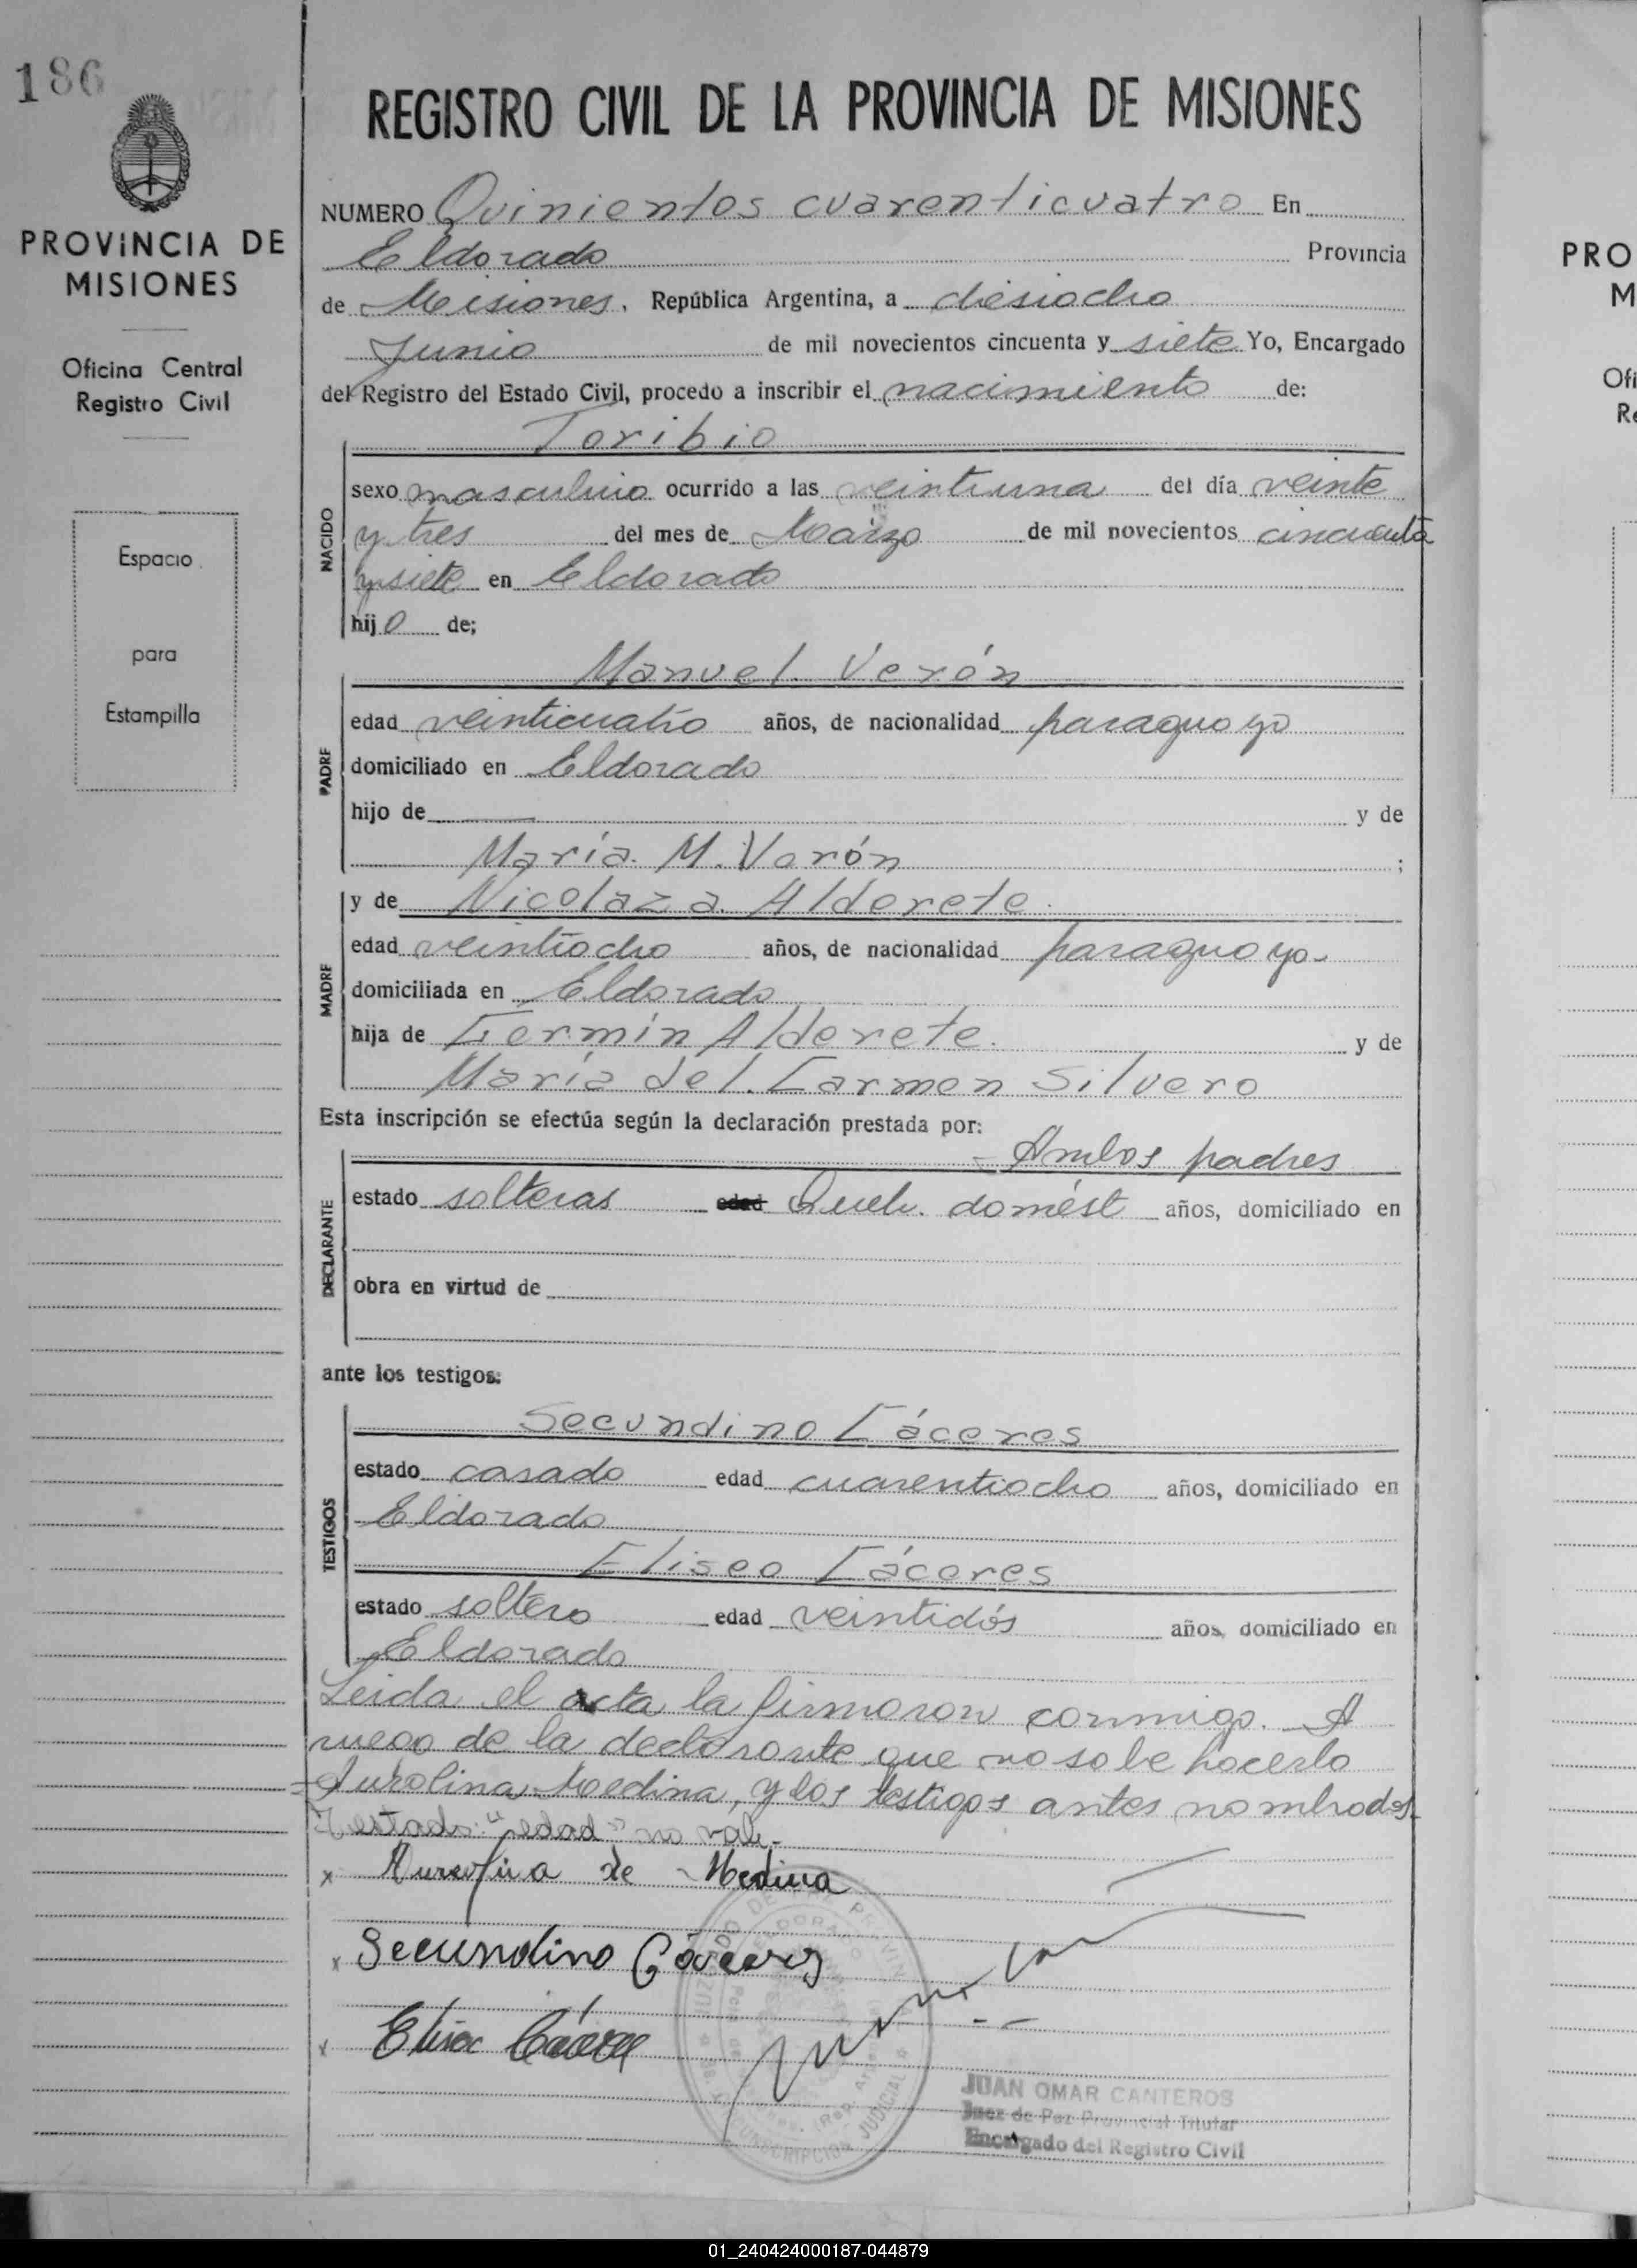 186
PROVINCIA DE
MISIONES
Oficina Central
Registro Civil
Espacio
para
Estampilla
REGISTRO CIVIL DE LA PROVINCIA DE MISIONES
NUMERO Quinientos cuarenticuatro En
Eldorado Provincia
de Misiones, República Argentina, a diesiocho
Junio de mil novecientos cincuenta y siete Yo, Encargado
del Registro del Estado Civil, procedo a inscribir el nacimiento de:
Toribio
NACIDO
sexo masculino ocurrido a las veintiuna del día veinte
y tres del mes de Marzo de mil novecientos cincuenta
y siete en Eldorado
hijo de;
Manuel Verón
PADRE
edad veinticuatro años, de nacionalidad paraguayo
domiciliado en Eldorado
hijo de y de
María M. Verón ;
y de Nicolaza Alderete.
MADRE
edad veintiocho años, de nacionalidad paraguaya-
domiciliada en Eldorado
hija de Fermín Alderete. y de
María del Carmen Silvero
Esta inscripción se efectúa según la declaración prestada por:
- Ambos padres
DECLARANTE
estado solteros edad Queh. domést años, domiciliado en
obra en virtud de
ante los testigos:
Secundino Cáceres
TESTIGOS
estado casado edad cuarentiocho años, domiciliado en
Eldorado
Eliseo Cáceres
estado soltero edad veintidós años, domiciliado en
Eldorado
Leida el acta la firmaron conmigo. A
ruego de la declarante que no sabe hacerlo
Aurolina Medina, y los testigos antes nombrados.
Testado: "edad" no vale.-
x Aurolina de Medina
x Secundino Cáceres
x Eliseo Cáceres
JUAN OMAR CANTEROS
Juez de Paz Provincial Titular
Encargado del Registro Civil
PRO
M
Ofi
Re
01_240424000187-044879